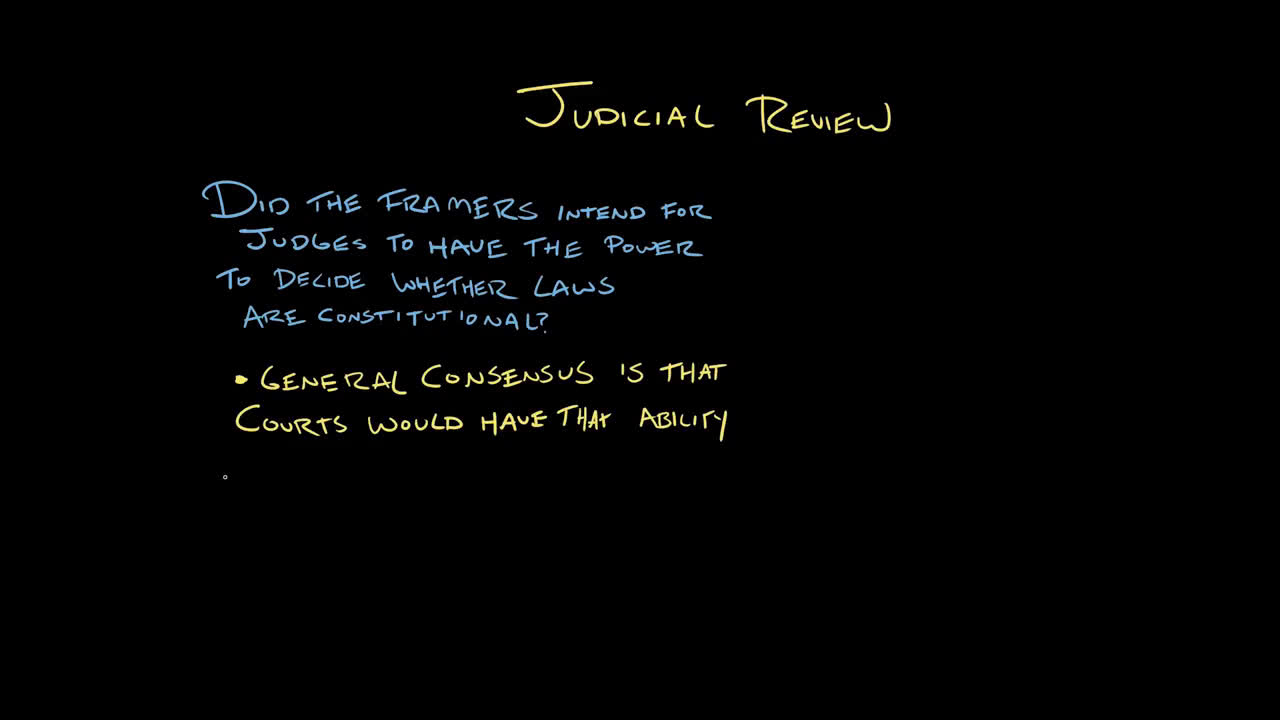 JUDICIAL REVIEW
DID THE FRAMERS INTEND FOR
JUDGES TO HAVE THE POWER
TO DECIDE WHETHER LAWS
ARE CONSTITUTIONAL?
• GENERAL CONSENSUS IS THAT
COURTS WOULD HAVE THAT ABILITY